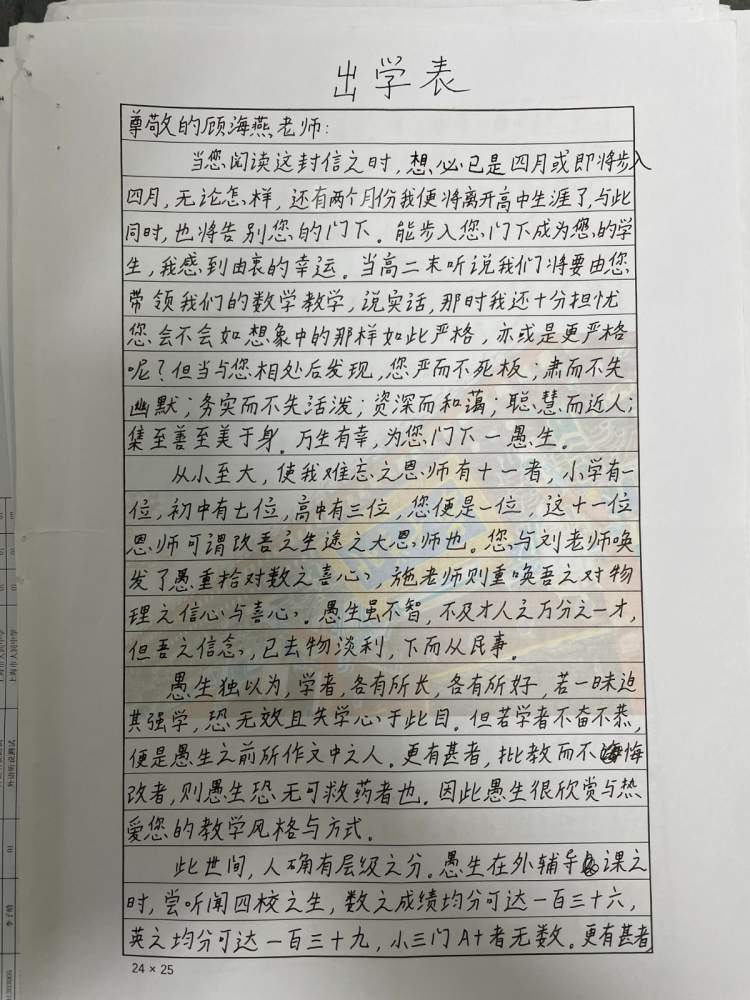 出学表
尊敬的顾海燕老师:
当您阅读这封信之时,想必已是四月或即将步入
四月,无论怎样,还有两个月份我便将离开高中生涯了,与此
同时,也将告别您的门下。能步入您门下成为您的学
生,我感到由衷的幸运。当高二末听说我们将要由您
带领我们的数学教学,说实话,那时我还十分担忧
您会不会如想象中的那样如此严格,亦或是更严格
呢?但当与您相处后发现,您严而不死板;肃而不失
幽默;务实而不失活泼;资深而和蔼;聪慧而近人;
集至善至美于身。万生有幸,为您门下一愚生。
从小至大,使我难忘之恩师有十一者,小学有一
位,初中有七位,高中有三位,您便是一位,这十一位
恩师可谓改吾之生途之大恩师也。您与刘老师唤
发了愚重拾对数之喜心,施老师则重唤吾之对物
理之信心与喜心。愚生虽不智,不及才人之万分之一才,
但吾之信念,已去物淡利,下而从民事。
愚生独以为,学者,各有所长,各有所好,若一昧迫
其强学,恐无效且失学心于此目。但若学者不奋不恭,
便是愚生之前所作文中之人。更有甚者,批教而不悔
改者,则愚生恐无可救药者也。因此愚生很欣赏与热
爱您的教学风格与方式。
此世间,人确有层级之分。愚生在外辅导课之
时,尝听闻四校之生,数之成绩均分可达一百三十六,
英之均分可达一百三十九,小三门A+者无数。更有甚者
24×25
上海市人民中学
外语听说测试